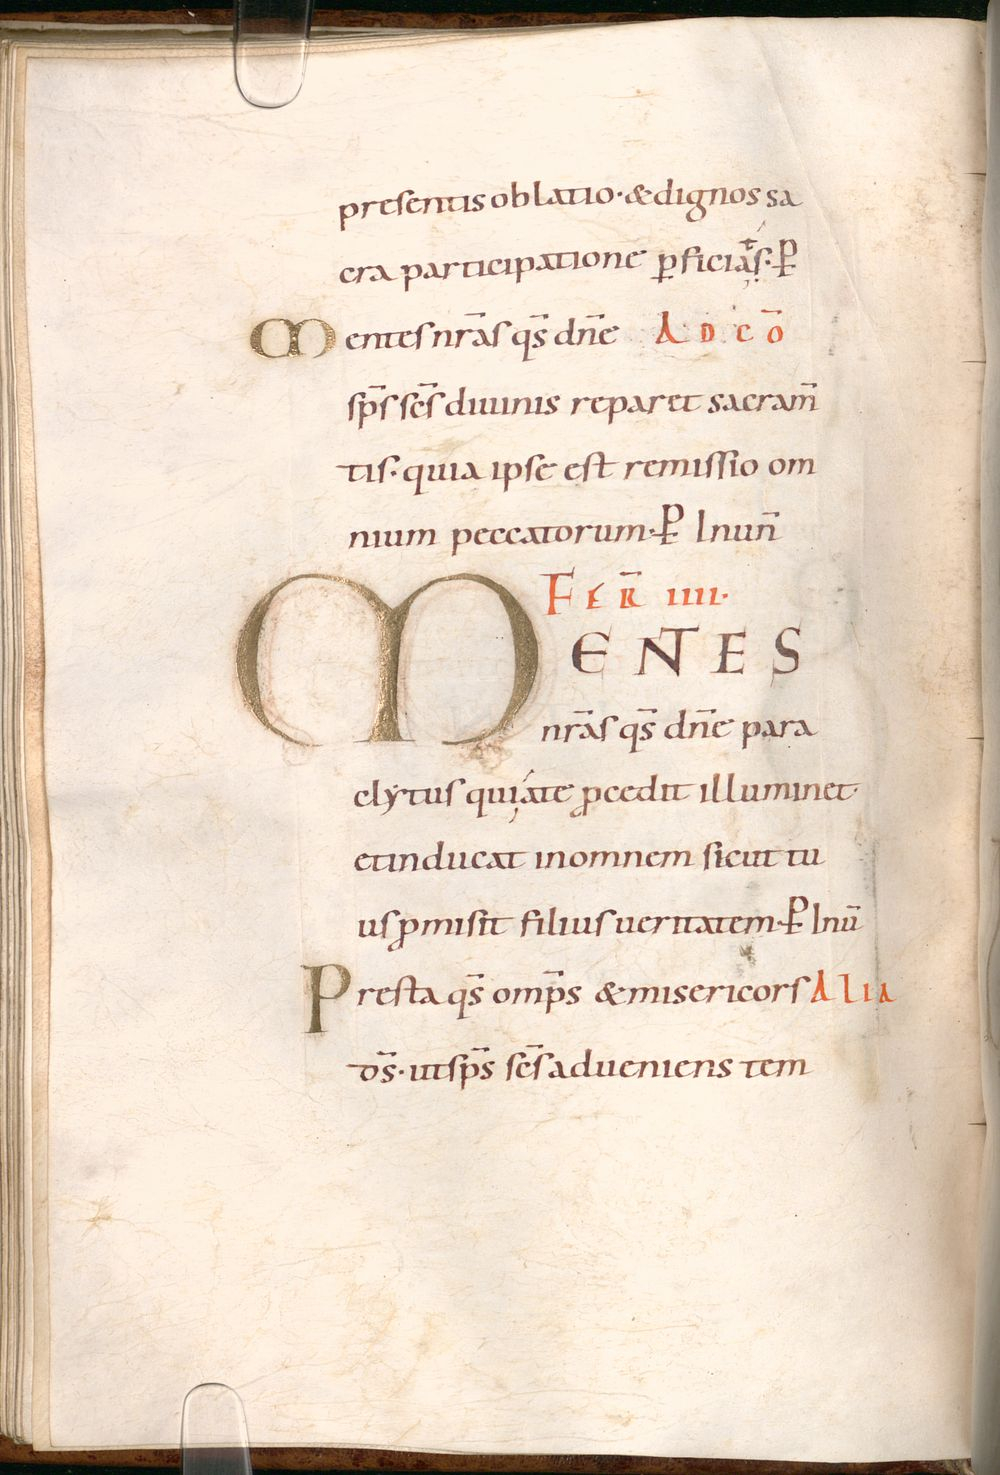 presentis oblatio· & dignos sa
cra participatione ꝑficiat́s·ꝑ
Mentes nr̄as qs̄ dn̄e AD CŌ
sp̄s sc̄s diuinis reparet sacram̄
tis· quia ipse est remissio om
nium peccatorum·ꝑ In un̄
FER̄ IIII·
MENTES
nr̄as qs̄ dn̄e para
clẏtus qui a te ꝓcedit illuminet·
et inducat in omnem sicut tu
us ꝓmisit filius ueritatem·ꝑ In ū
Presta qs̄ omp̄s & misericors ALIA
ds̄· ut sp̄s sc̄s adueniens tem